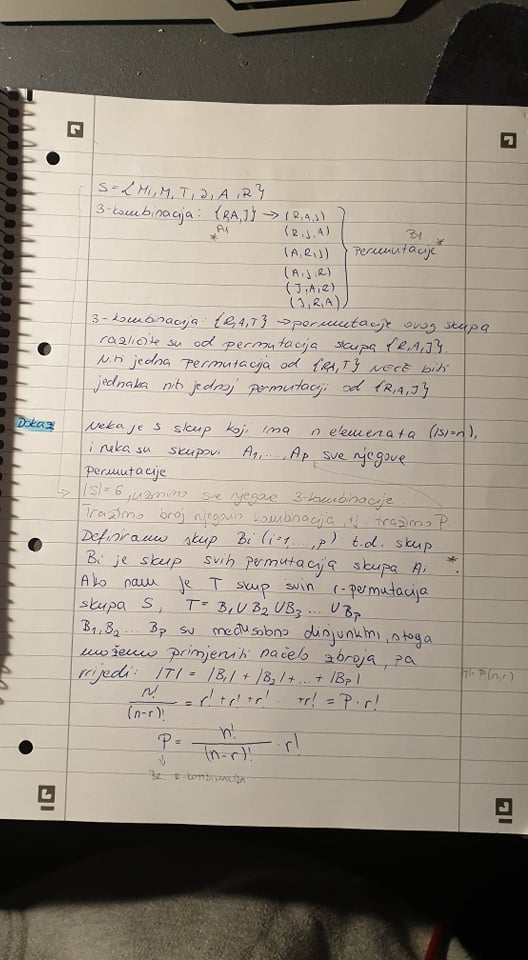 S = {M, M, T, J, A, R}
3-kombinacija: {R,A,J} → (R,A,J)
A1
*
(R,J,A)
(A,R,J)
(A,J,R)
(J,A,R)
(J,R,A)
B1
permutacije *
3-kombinacija: {R,A,T} → permutacije ovog skupa
različite su od permutacija skupa {R,A,J}.
Niti jedna permutacija od {R,A,T} NEĆE biti
jednaka niti jednoj permutaciji od {R,A,J}
Dokaz
Neka je S skup koji ima n elemenata (|S|=n),
i neka su skupovi A1,...,Ap sve njegove
permutacije
|S|=6, uzmimo sve njegove 3-kombinacije.
Tražimo broj njegovih kombinacija, tj. tražimo P.
Definiramo skup Bi (i=1,...,p) t.d. skup
Bi je skup svih permutacija skupa Ai *.
Ako nam je T skup svih r-permutacija
skupa S, T = B1 ∪ B2 ∪ B3 ... ∪ Bp
B1, B2 ... Bp su međusobno disjunktni, stoga
možemo primjeniti načelo zbroja, pa
vrijedi: |T| = |B1| + |B2| + ... + |Bp|
P(n,r)
n!/(n-r)! = r! + r! + r! ... + r! = P · r!
P = n!/(n-r)! · r!
↓